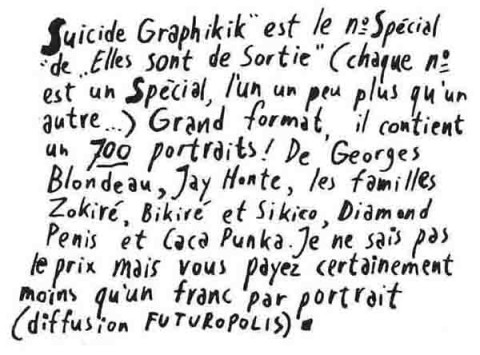 Suicide Graphikik" est le nº Spécial
de „Elles sont de Sortie" (chaque nº
est un Spécial, l'un un peu plus qu'un
autre...) Grand format, il contient
un 700 portraits! De Georges
Blondeau, Jay Honte, les familles
Zokiré, Bikiré et Sikico, Diamond
Penis et Caca Punka. Je ne sais pas
le prix mais vous payez certainement
moins qu'un franc par portrait
(diffusion FUTUROPOLIS).